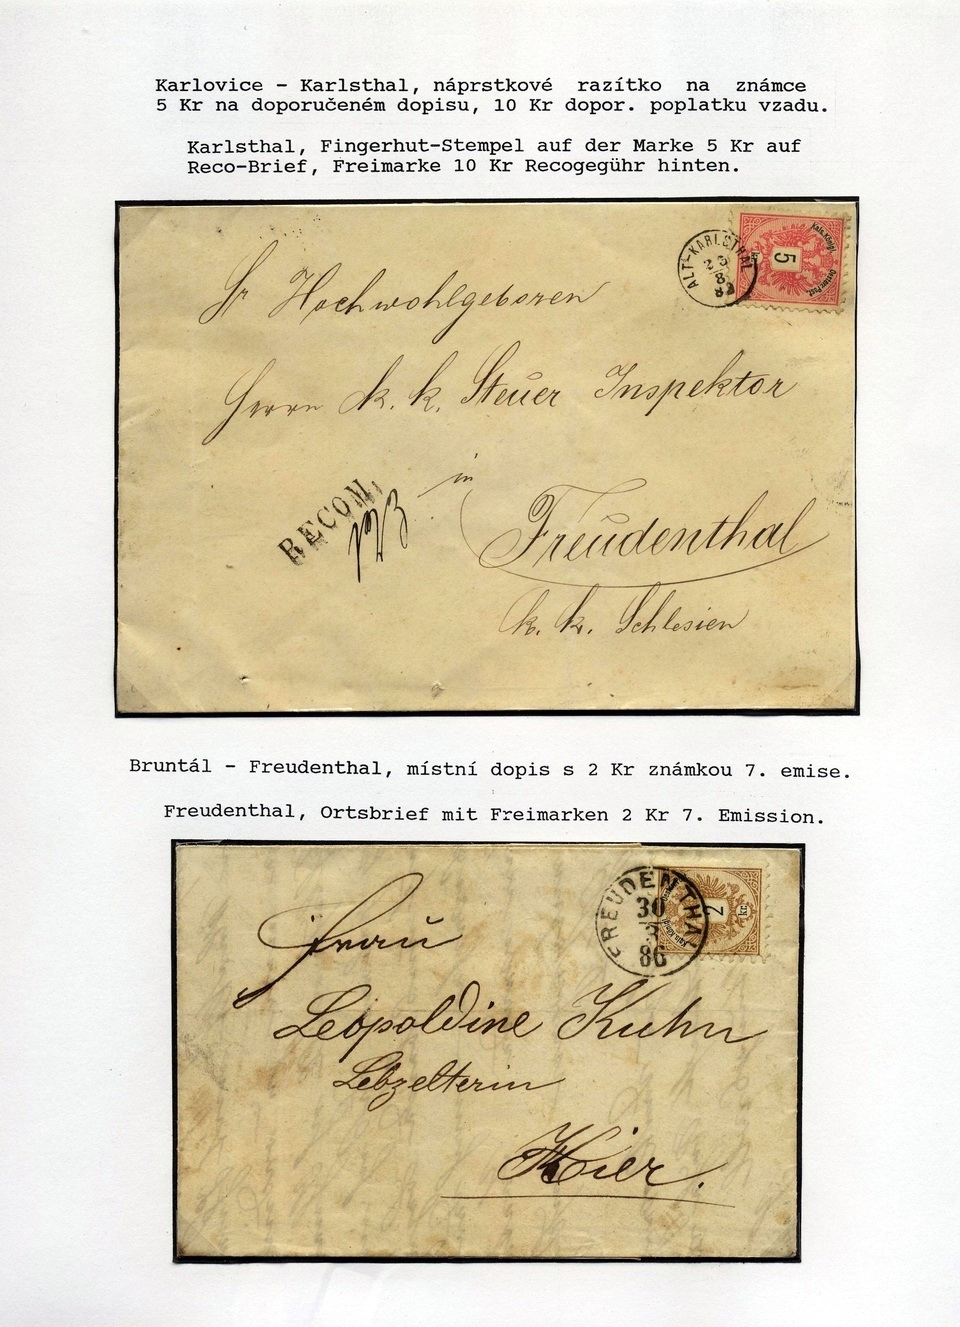 Karlovice - Karlsthal, náprstkové razítko na známce
5 Kr na doporučeném dopisu, 10 Kr dopor. poplatku vzadu.
Karlsthal, Fingerhut-Stempel auf der Marke 5 Kr auf
Reco-Brief, Freimarke 10 Kr Recogegühr hinten.
ALT-KARLSTHAL
8
5
Kais. Königl.
Österr. Post
Sr Hochwohlgeboren
Herrn k. k. Steuer Inspektor
RECOM.
in
Freudenthal
k. k. Schlesien
Bruntál - Freudenthal, místní dopis s 2 Kr známkou 7. emise.
Freudenthal, Ortsbrief mit Freimarken 2 Kr 7. Emission.
FREUDENTHAL
30
3
86
2
kr.
Kais. Königl.
Frau
Leopoldine Kuhn
Lebzelterin
Hier.